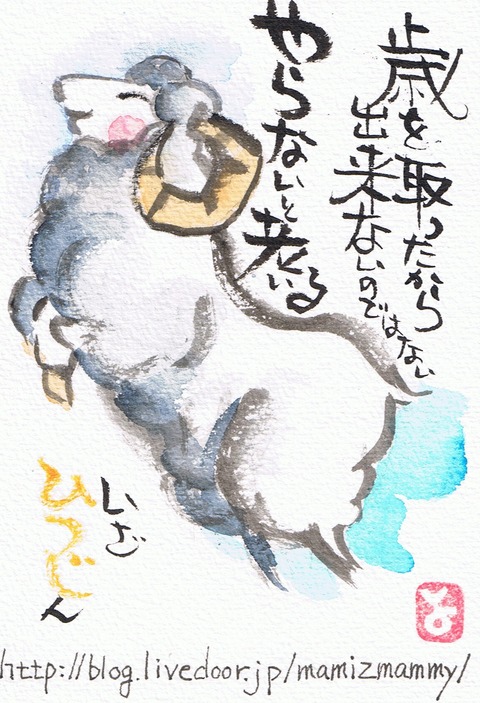 歳を取ったから
出来ないのではない
やらないと老いる
いざ
ひつじん
http://blog.livedoor.jp/mamizmammy/